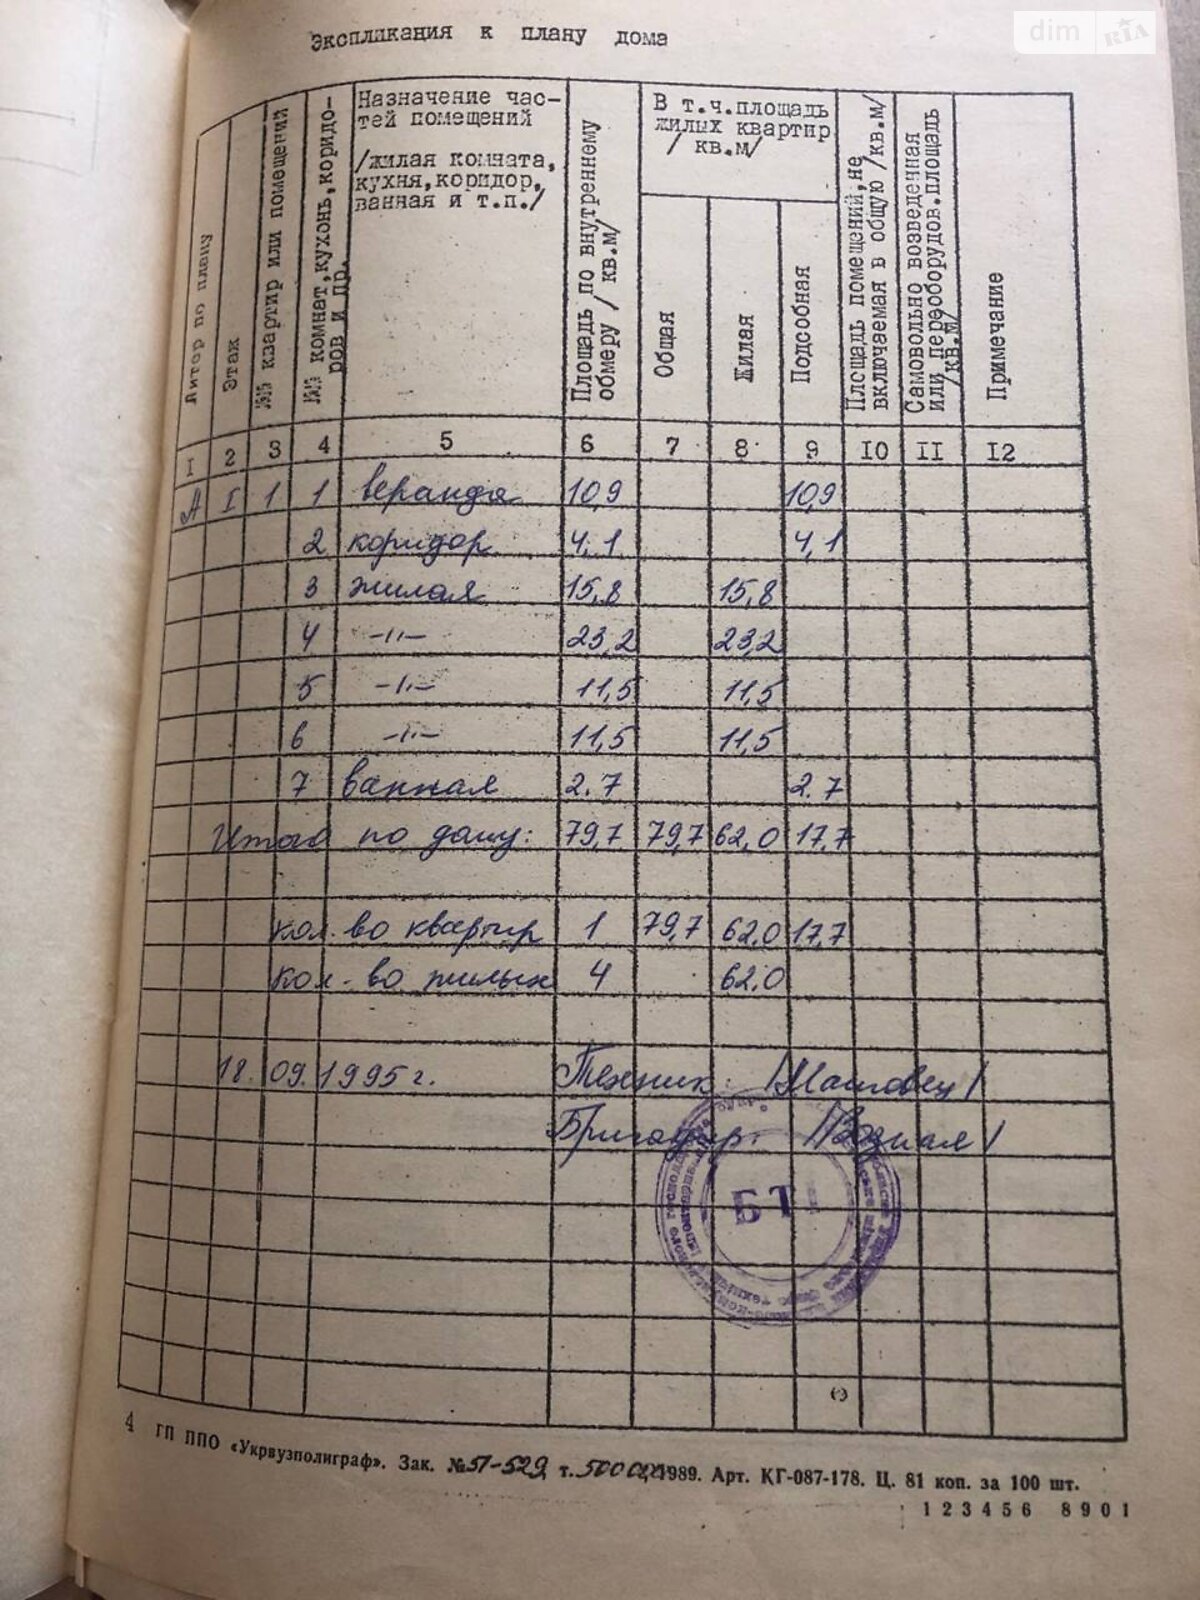 dim RIA
Экспликация к плану дома
Литер по плану
Этаж
№№ квартир или помещений
№№ комнат, кухонь, коридоров и пр.
Назначение частей помещений
/жилая комната,
кухня, коридор,
ванная и т.п./
Площадь по внутреннему обмеру / кв.м/
В т.ч. площадь
жилых квартир
/ кв.м/
Общая
Жилая
Подсобная
Площадь помещений, не включаемая в общую /кв.м/
Самовольно возведенная или переоборудов. площадь /кв.м/
Примечание
I 2 3 4 5 6 7 8 9 10 II 12
А I 1 1 веранда 10,9 10,9
2 коридор 4,1 4,1
3 жилая 15,8 15,8
4 -"- 23,2 23,2
5 -"- 11,5 11,5
6 -"- 11,5 11,5
7 ванная 2.7 2.7
Итого по дому: 79,7 79,7 62,0 17,7
кол-во квартир 1 79,7 62,0 17,7
кол-во жилых 4 62,0
18.09.1995 г. Техник: /Машовец/
Бригадир: /Возная/
БТ
4 ГП ППО «Укрвузполиграф». Зак. №51-529 т. 500 000 1989. Арт. КГ-087-178. Ц. 81 коп. за 100 шт.
1 2 3 4 5 6 8 9 0 1